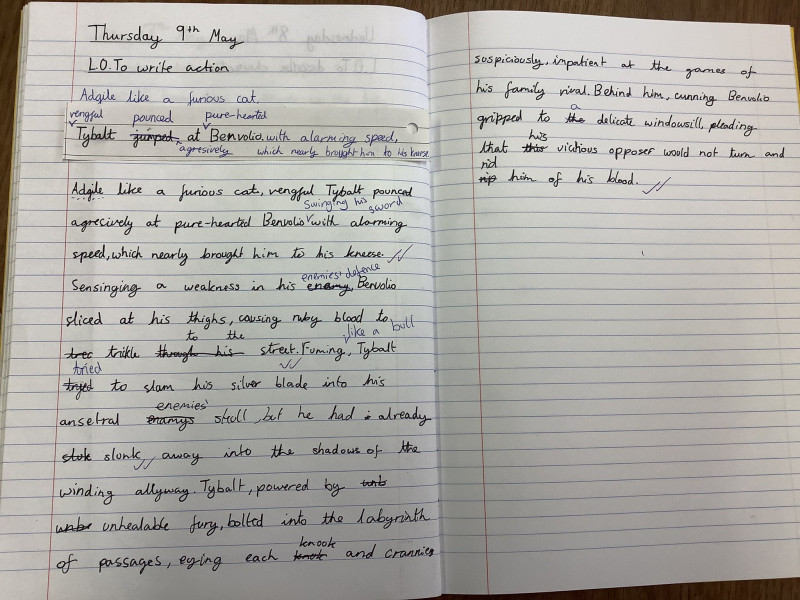 Thursday 9th May
L.O. To write action
Adgile like a furious cat,
vengful pounced pure-hearted
Tybalt jumped at Benvolio, with alarming speed,
agresively which nearly brought him to his kneese
Adgile like a furious cat, vengful Tybalt pounced
swinging his sword
agresively at pure-hearted Benvolio with alarming
speed, which nearly brought him to his kneese.
Sensinging a weakness in his enemy, Benvolio
enemies' defence
sliced at his thighs, causing ruby blood to
to the like a bull
trec trikle through his street. Fuming, Tybalt
tried
tryed to slam his silver blade into his
enemies'
ansetral enamys skull, but he had already
stuk slunk away into the shadows of the
winding allyway. Tybalt, powered by unb
unbe unhealable fury, bolted into the labyrinth
knook
of passages, eying each knok and crannies
suspiciously, impatient at the games of
his family rival. Behind him, cunning Benvolio
a
gripped to the delicate windowsill, pleading
his
that this vicitious opposer would not turn and
rid
rip him of his blood.